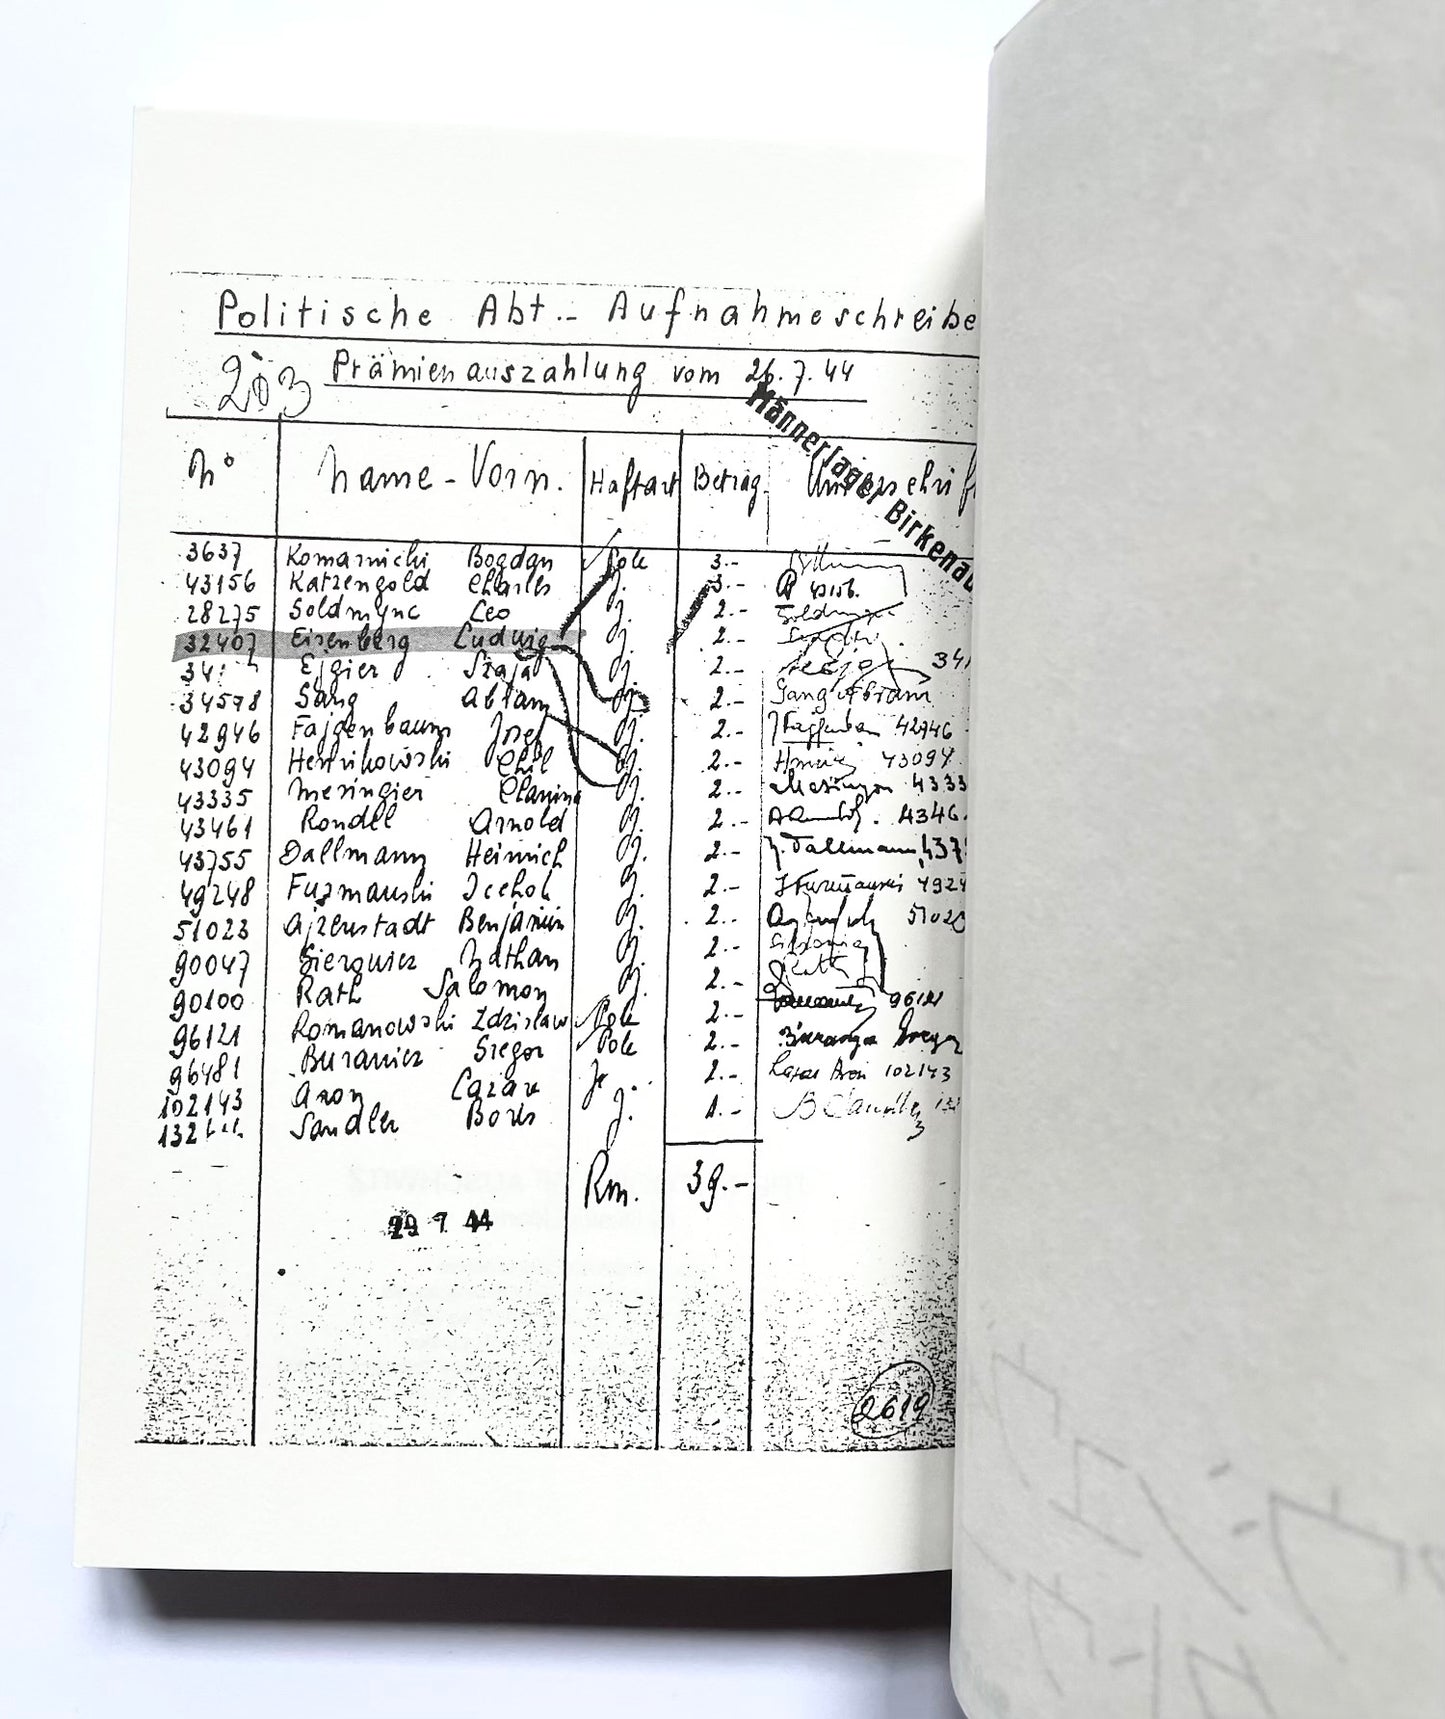 Politische Abt.- Aufnahmeschreibe
203 Prämienauszahlung vom 26.7.44
Männerlager Birkenau
N° Name-Vorn. Haftart Betrag Unterschrif
3637 Komarnicki Bogdan Pole 3.-
43156 Katzengold Charles J. 3.- 43156.
28275 Soldmync Leo J. 2.-
32407 Eisenberg Ludwig J. 2.-
Ejgier Szaja J. 2.-
34578 Sang Abram J. 2.- Sang Abram
42946 Fajgenbaum Josef J. 2.- 42946
43094 Henrikowski Chil J. 2.- 43094
43335 Meringier J. 2.- 4333
43461 Rondel Arnold J. 2.- 4346
43755 Dallmann Heinrich J. 2.- Dallmann 437
49248 Furmanski Icchok J. 2.- 4924
51023 Ajzenstadt Benjamin J. 2.- 5102
90047 Nathan J. 2.-
90100 Rath Salomon J. 2.- Rath
96121 Romanowski Zdzislaw Pole 2.- 96121
96481 Buraniez Gregor Pole 2.-
102143 Aron Lazar J. 2.- Lazar Aron 102143
Sandler Boris J. 1.-
Rm. 39.-
29 7 44
2619